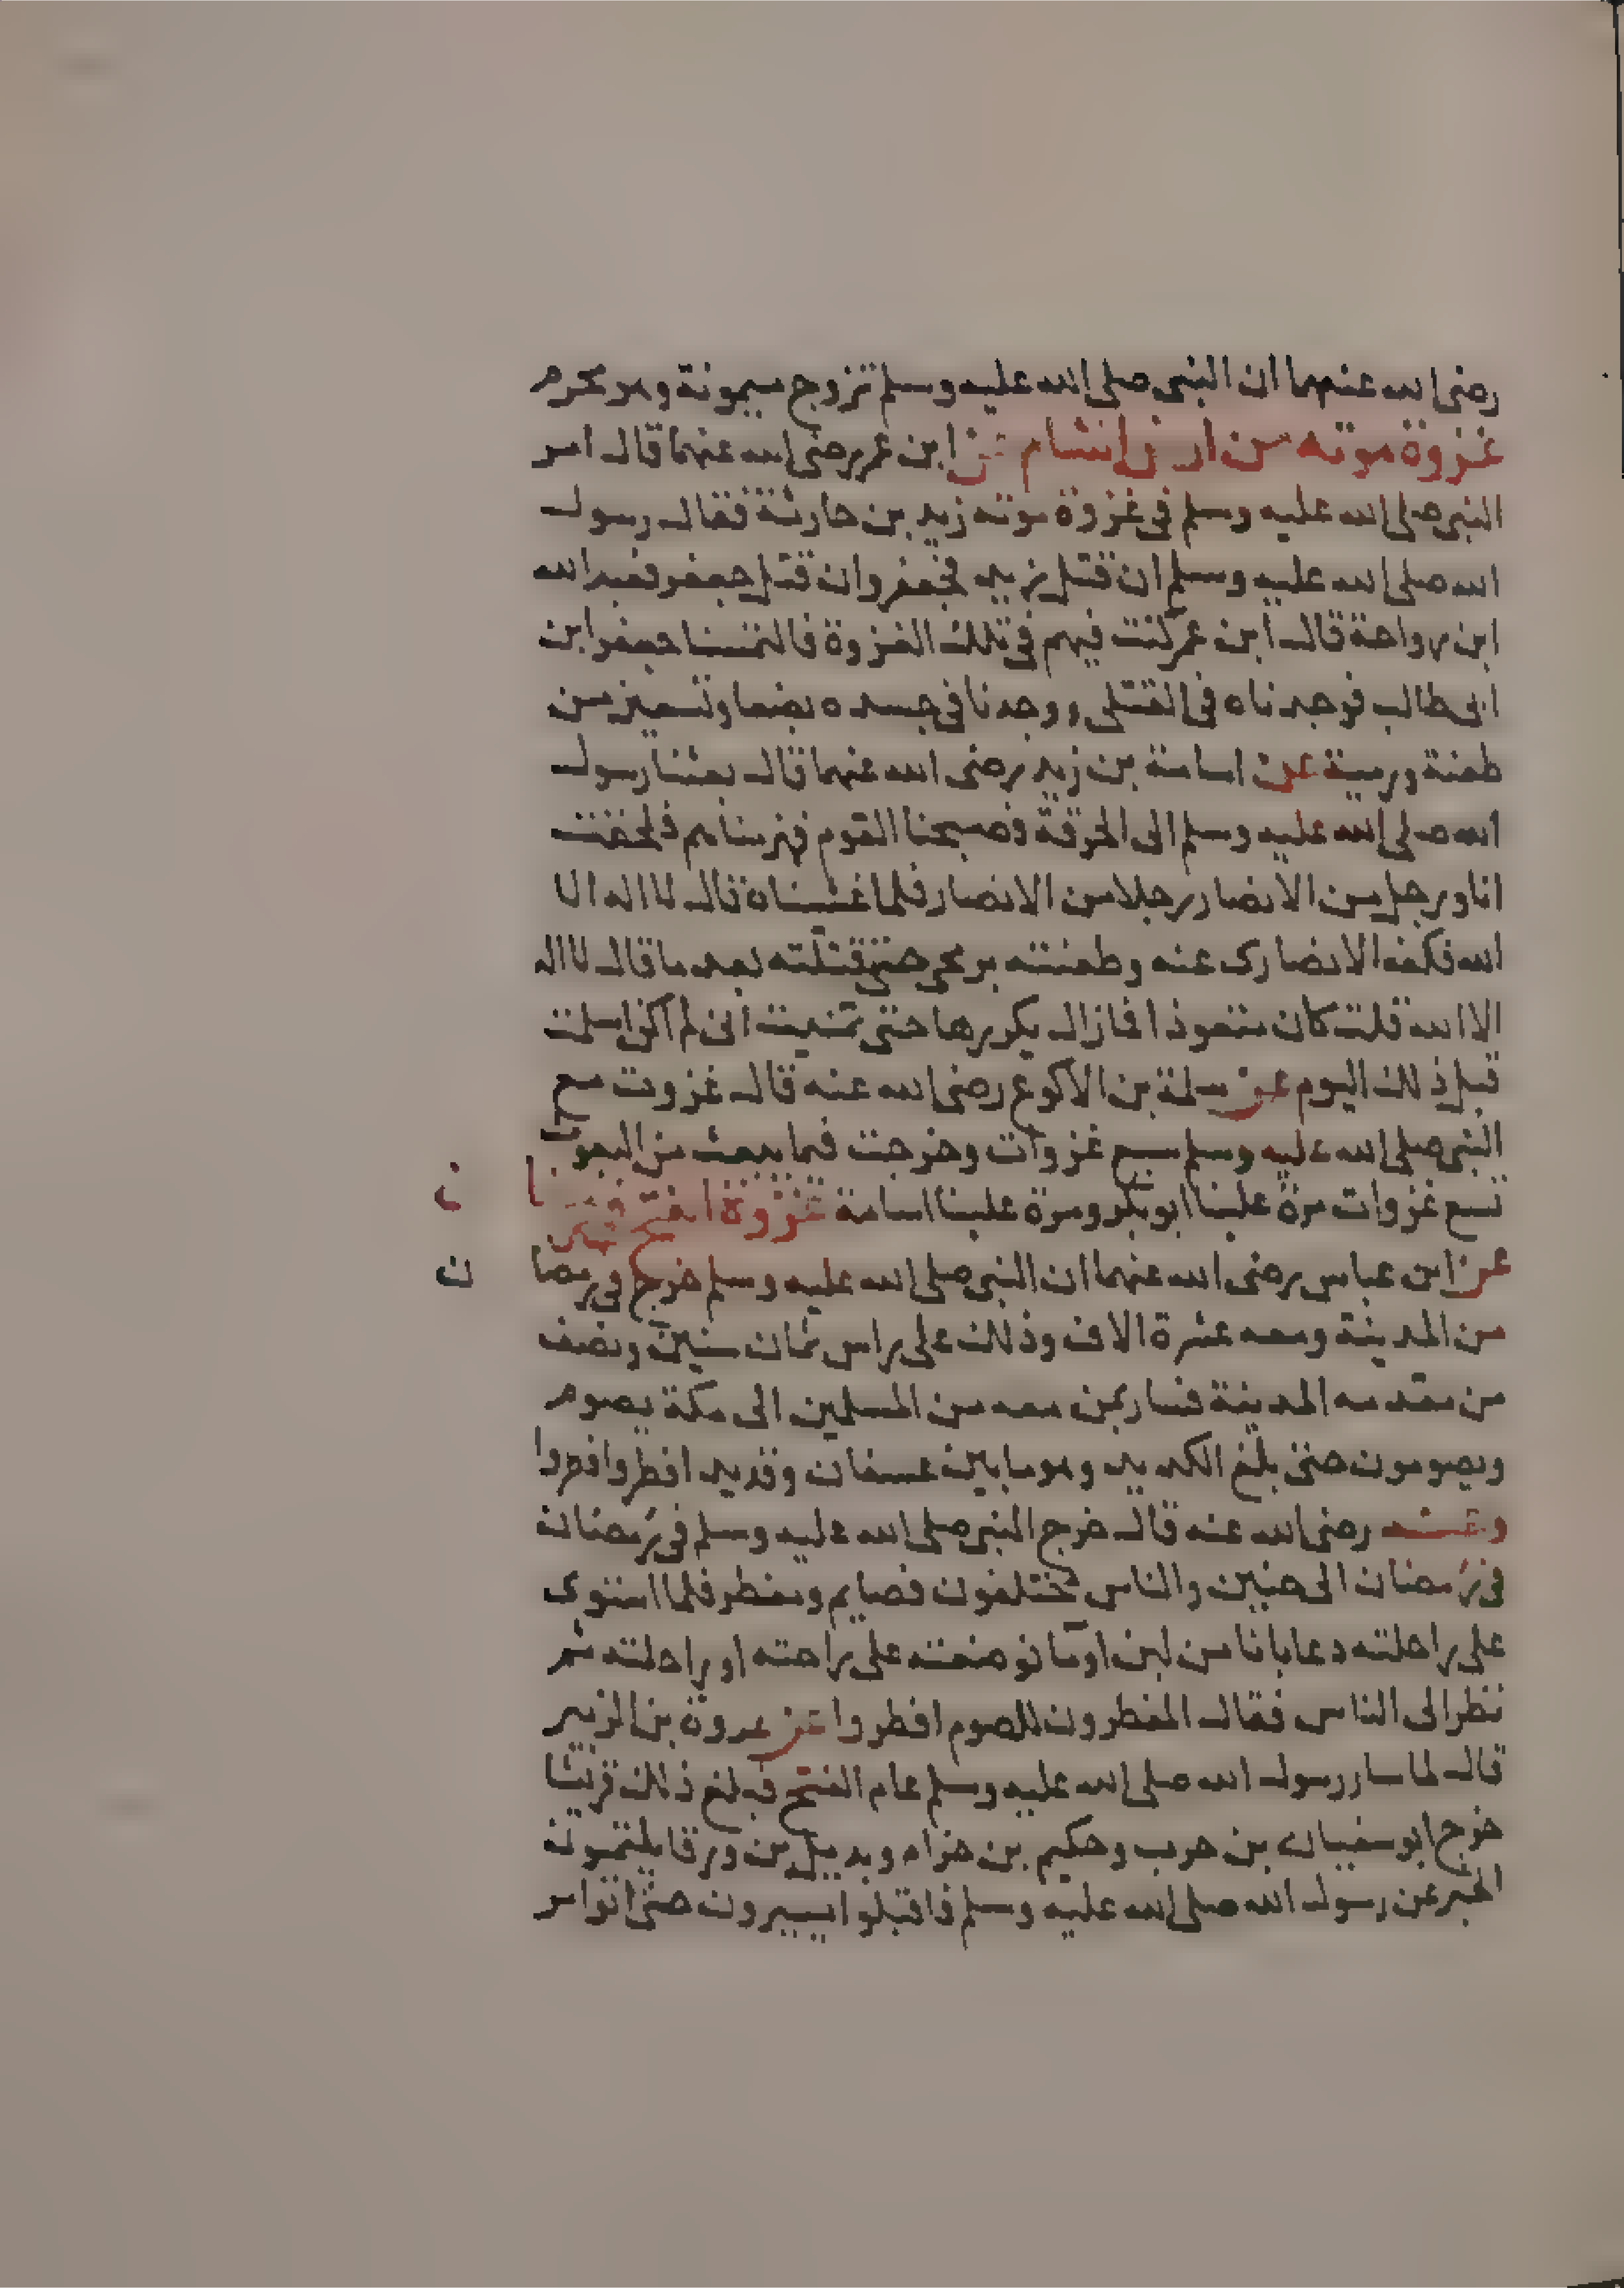 رضى الله عنهما ان النبى صلى الله عليه وسلم تزوج ميمونة وهو محرم
غزوة موته من ارض الشام عن ابن عمر رضى الله عنهما قال امر
النبى صلى الله عليه وسلم فى غزوة موته زيد بن حارثة فقال رسول
الله صلى الله عليه وسلم ان قتل زيد فجعفر وان قتل جعفر فعبد الله
ابن رواحة قال ابن عمر كنت فيهم فى تلك الغزوة فالتمسنا جعفر ابن
ابى طالب فوجدناه فى القتلى ووجدنا فى جسده بضعا وتسعين من
طعنة ورمية عن اسامة بن زيد رضى الله عنهما قال بعثنا رسول
الله صلى الله عليه وسلم الى الحرقة فصبحنا القوم فهزمناهم فلحقت
انا ورجل من الانصار رجلا من الانصار فلما غشيناه قال لا اله الا
الله فكف الانصارى عنه وطعنته برمحى حتى قتلته بعد ما قال لا اله
الا الله قلت كان متعوذا فما زال يكررها حتى تمنيت انى لم اكن اسلمت
قبل ذلك اليوم عن سلمة بن الاكوع رضى الله عنه قال غزوت مع
النبى صلى الله عليه وسلم سبع غزوات وخرجت فيما يبعث من البعوث
تسع غزوات مرة علينا ابو بكر ومرة علينا اسامة غزوة الفتح فى رمضان
عن ابن عباس رضى الله عنهما ان النبى صلى الله عليه وسلم خرج فى رمضان
من المدينة ومعه عشرة الاف وذلك على راس ثمان سنين ونصف
من مقدمه المدينة فسار بمن معه من المسلمين الى مكة يصوم
ويصومون حتى بلغ الكديد وهو ما بين عسفان وقديد افطر وافطروا
وعنه رضى الله عنه قال خرج النبى صلى الله عليه وسلم فى رمضان
فى رمضان الى حنين والناس مختلفون فصايم ومفطر فلما استوى
على راحلته دعا باناء من لبن او ماء فوضعته على راحته او راحلته ثم
نظر الى الناس فقال المفطرون للصوم افطروا عن عروة بن الزبير
قال لما سار رسول الله صلى الله عليه وسلم عام الفتح فبلغ ذلك قريشا
خرج ابو سفيان بن حرب وحكيم بن حزام وبديل بن ورقا يلتمسون
الخبر عن رسول الله صلى الله عليه وسلم فاقبلوا يسيرون حتى اتوا مر